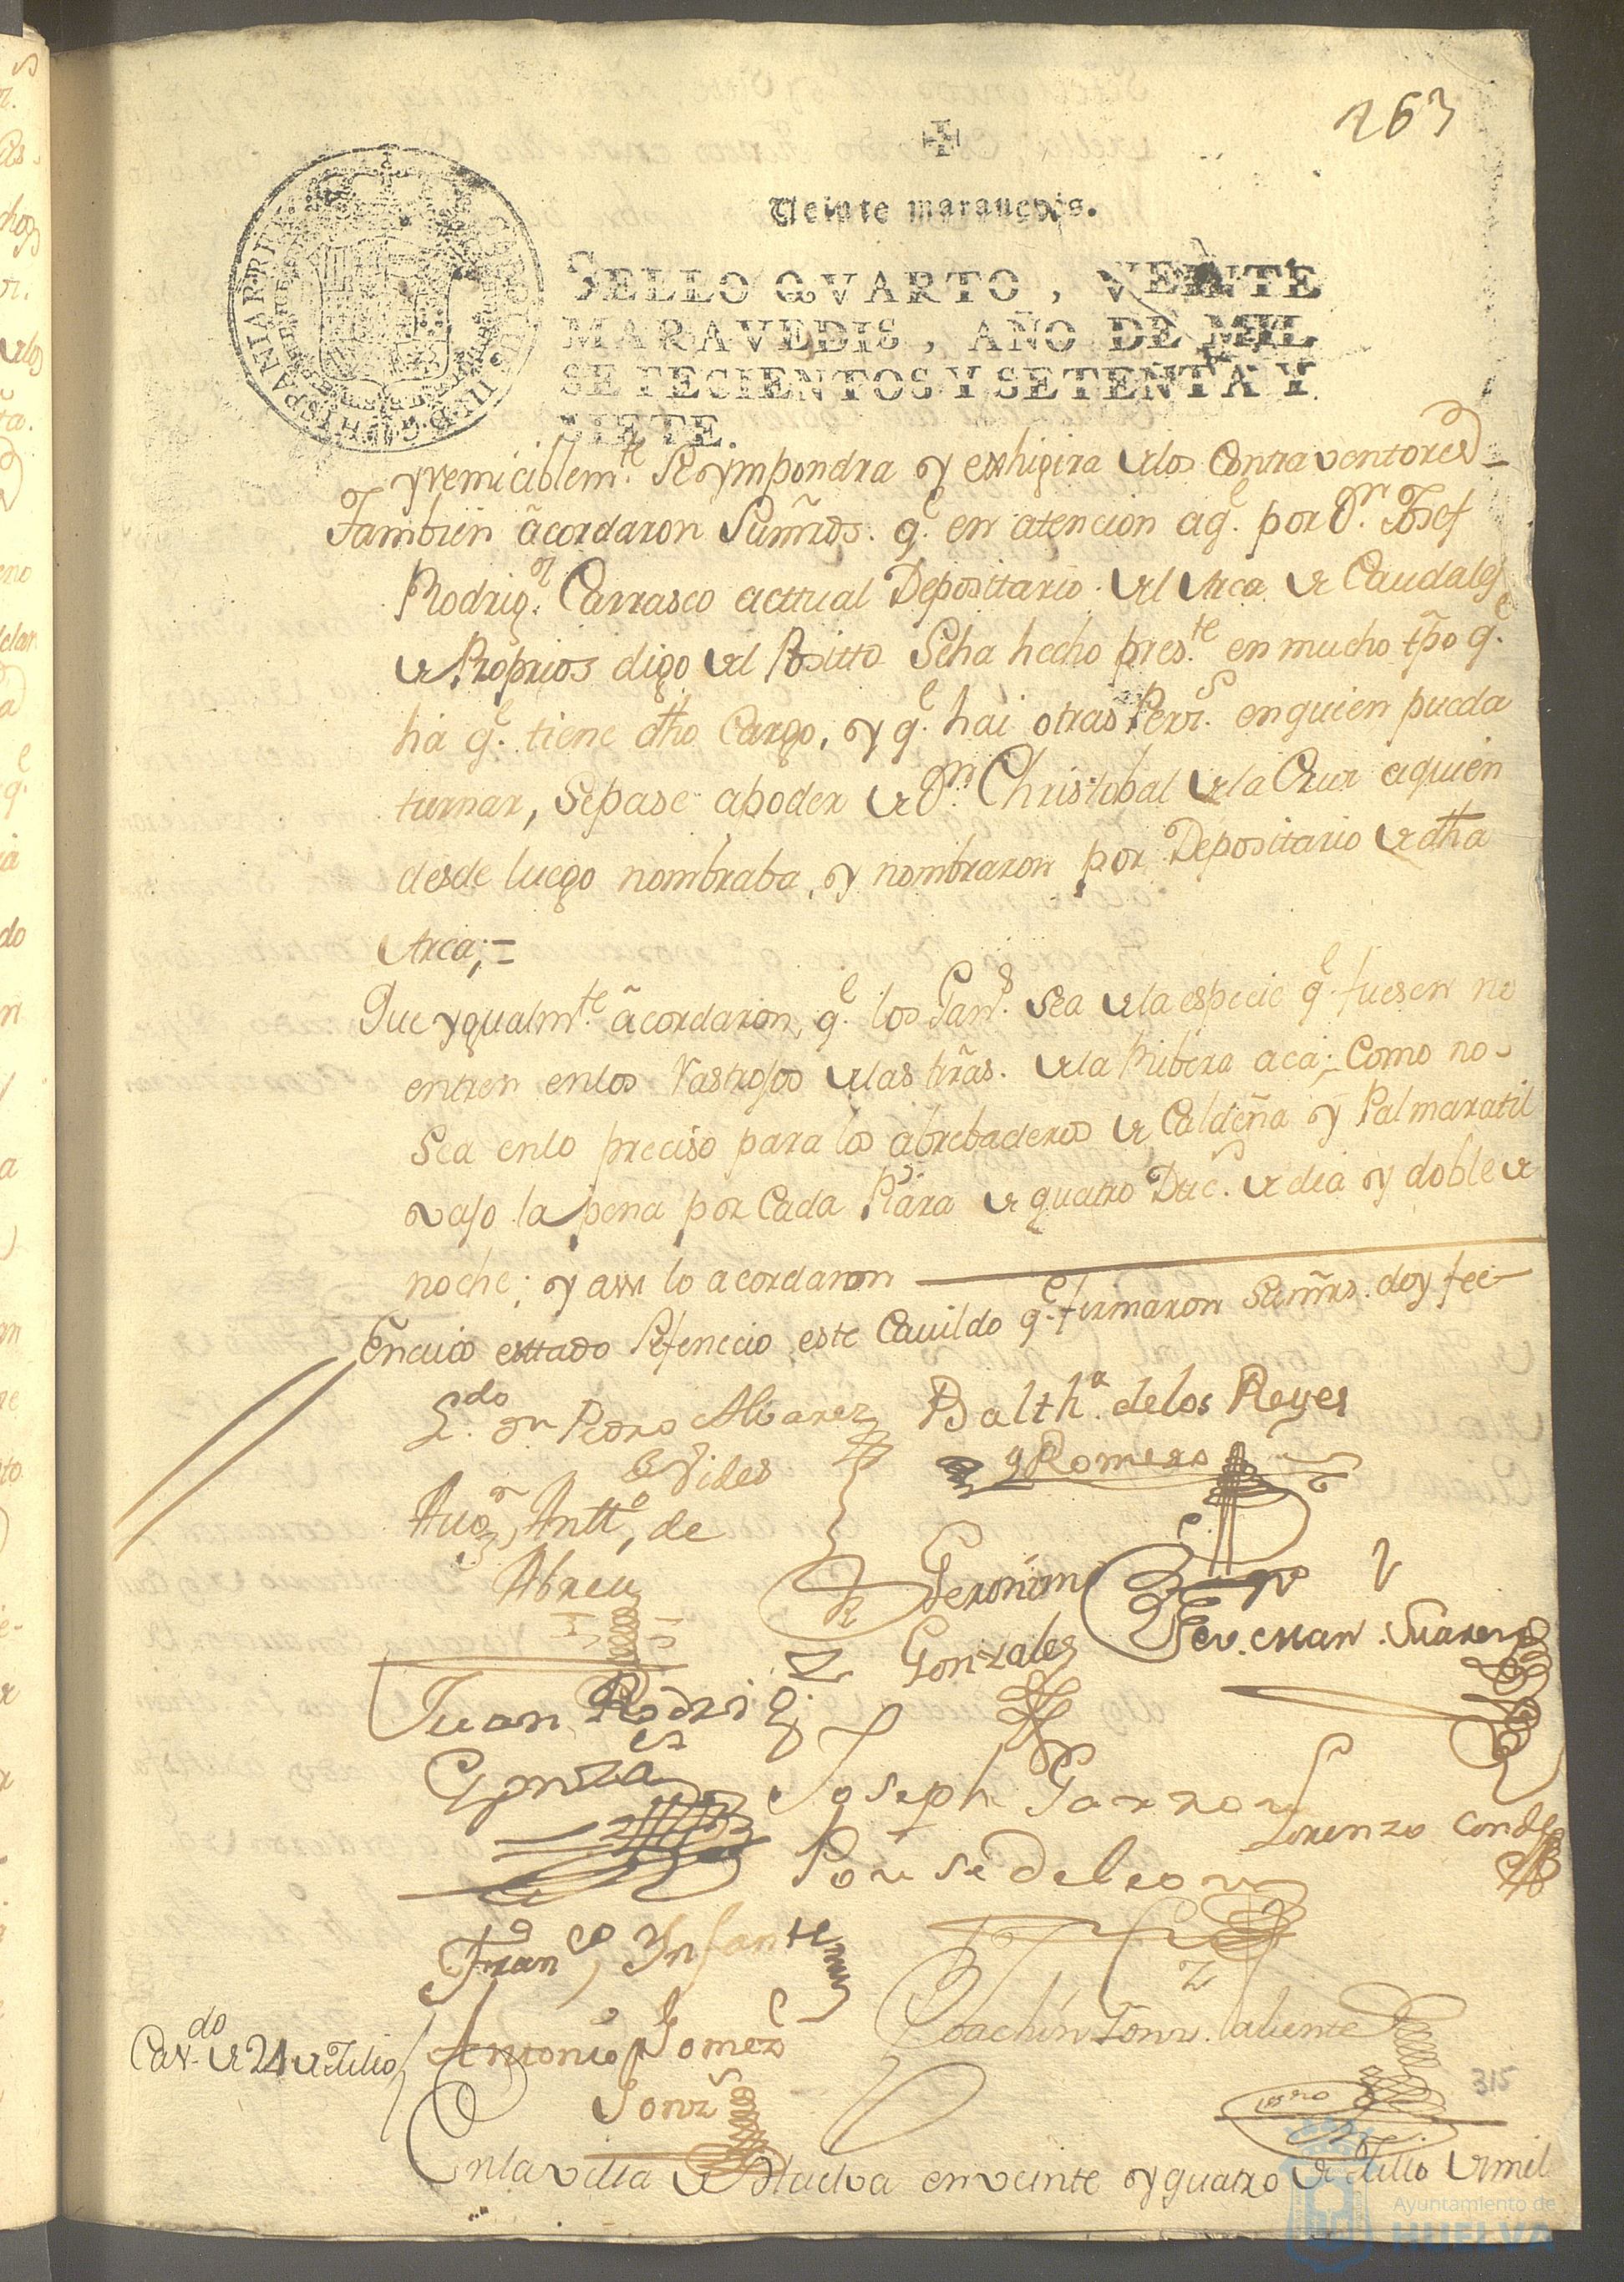 263
Veinte marauedis.
SELLO QVARTO, VEINTE
MARAVEDIS, AÑO DE MIL
SETECIENTOS Y SETENTA Y
SIETE.
yrremiciblem.te Se ympondra y exhigira de los Contraventores
Tambien acordaron Sumrds. q.e en atencion a q.e por D.n Josef
Rodrig.z Carrasco actual Depositario del Arca de Caudales
de Proprios digo del Positto Se ha hecho pres.te en mucho tpo q.e
ha q.e tiene dho Cargo, y q.e hai otras Pers.s en quien pueda
turnar, Se pase a poder de D.n Christobal de la Cruz a quien
desde luego nombraba, y nombraron por Depositario de dha
Arca; =
Que ygualm.te acordaron, q.e los Gan.s sea de la especie q.e fuesen no
entren en los Rastrojos de las tras. de la Ribera aca; Como no
Sea en lo preciso para los abrebaderos de Caldeña y Palmaratil
vajo la pena por Cada Piara de quatro Duc.s de dia y doble de
noche; y assi lo acordaron
En cuio esttado Se fenecio este Cauildo q.e firmaron Sumrds. doy fee
L.do Dn Pedro Alvarez
de Vides
Balth.r de los Reyes
y Romero
Antt.o, de
Abreu
Geronimo
Gonzales
Man. Suarez
Juan Rodrig.
Gonza
Joseph Garzon
Ponse de leon
Lorenzo Conde
Fran.co Infante
Antonio Gomez
Gonz
Joachin Gonz. aliente
Cav.do de 24 de Julio
315
En la villa de Huelva en veinte y quatro de Julio de mil
Ayuntamiento de
HUELVA